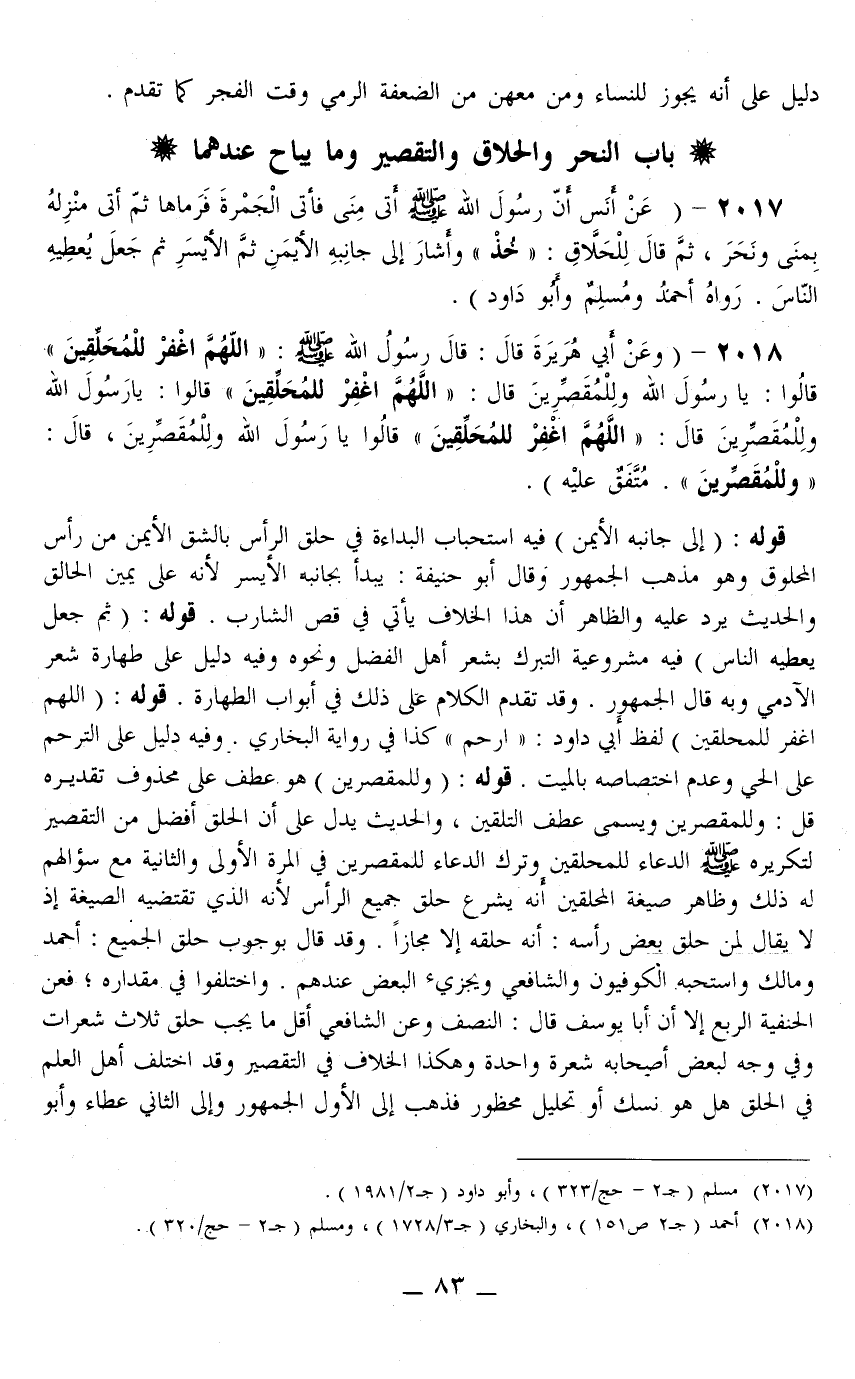 دليل على أنه يجوز للنساء ومن معهن من الضعفة الرمي وقت الفجر كما تقدم .
❋ باب النحر والحلاق والتقصير وما يباح عندهما ❋
٢٠١٧ – ( عَنْ أَنَس أَنّ رسُولَ الله ﷺ أَتى مِنَى فأتى الْجَمْرةَ فَرماها ثمّ أتى منْزِلهُ
بِمنَى ونَحَرَ ، ثمَّ قالَ لِلْحَلَّاقِ : « خُذْ » وأَشارَ إلى جانِبهِ الأيْمَنِ ثمَّ الأيْسَرِ ثم جَعلَ يُعطِيهِ
النّاسَ . رَواهُ أحمدُ ومُسلِمٌ وأَبُو دَاود ) .
٢٠١٨ – ( وعَنْ أَبي هُرَيرَةَ قالَ : قالَ رسُولُ الله ﷺ : « اللّهُمَّ اغْفرْ للْمُحَلِّقِينَ »
قالُوا : يا رسُولَ الله ولِلْمُقَصِّرِينَ قال : « اللَّهُمَّ اغْفِرْ للمُحَلِّقِينَ » قالوا : يارَسُولَ الله
ولِلْمُقَصِّرِينَ قالَ : « اللَّهُمَّ اغْفِرْ للمُحَلِّقِينَ » قالُوا يا رَسُولَ الله ولِلْمُقَصِّرِينَ ، قالَ :
« وللْمُقَصِّرينَ » . مُتَّفَقٌ عليْه ) .
قوله : ( إلى جانبه الأيمن ) فيه استحباب البداءة في حلق الرأس بالشق الأيمن من رأس
المحلوق وهو مذهب الجمهور وقال أبو حنيفة : يبدأ بجانبه الأيسر لأنه على يمين الحالق
والحديث يرد عليه والظاهر أن هذا الخلاف يأتي في قص الشارب . قوله : ( ثم جعل
يعطيه الناس ) فيه مشروعية التبرك بشعر أهل الفضل ونحوه وفيه دليل على طهارة شعر
الآدمي وبه قال الجمهور . وقد تقدم الكلام على ذلك في أبواب الطهارة . قوله : ( اللهم
اغفر للمحلقين ) لفظ أبي داود : « ارحم » كذا في رواية البخاري . وفيه دليل على الترحم
على الحي وعدم اختصاصه بالميت . قوله : ( وللمقصرين ) هو عطف على محذوف تقديره
قل : وللمقصرين ويسمى عطف التلقين ، والحديث يدل على أن الحلق أفضل من التقصير
لتكريره ﷺ الدعاء للمحلقين وترك الدعاء للمقصرين في المرة الأولى والثانية مع سؤالهم
له ذلك وظاهر صيغة المحلقين أنه يشرع حلق جميع الرأس لأنه الذي تقتضيه الصيغة إذ
لا يقال لمن حلق بعض رأسه : أنه حلقه إلا مجازاً . وقد قال بوجوب حلق الجميع : أحمد
ومالك واستحبه الكوفيون والشافعي ويجزيء البعض عندهم . واختلفوا في مقداره ؛ فعن
الحنفية الربع إلا أن أبا يوسف قال : النصف وعن الشافعي أقل ما يجب حلق ثلاث شعرات
وفي وجه لبعض أصحابه شعرة واحدة وهكذا الخلاف في التقصير وقد اختلف أهل العلم
في الحلق هل هو نسك أو تحليل محظور فذهب إلى الأول الجمهور وإلى الثاني عطاء وأبو
(٢٠١٧) مسلم ( جـ٢ – حج/٣٢٣ ) ، وأبو داود ( جـ١٩٨١/٢ ) .
(٢٠١٨) أحمد ( جـ٢ ص١٥١ ) ، والبخاري ( جـ١٧٢٨/٣ ) ، ومسلم ( جـ٢ – حج/٣٢٠ ) .
– ٨٣ –